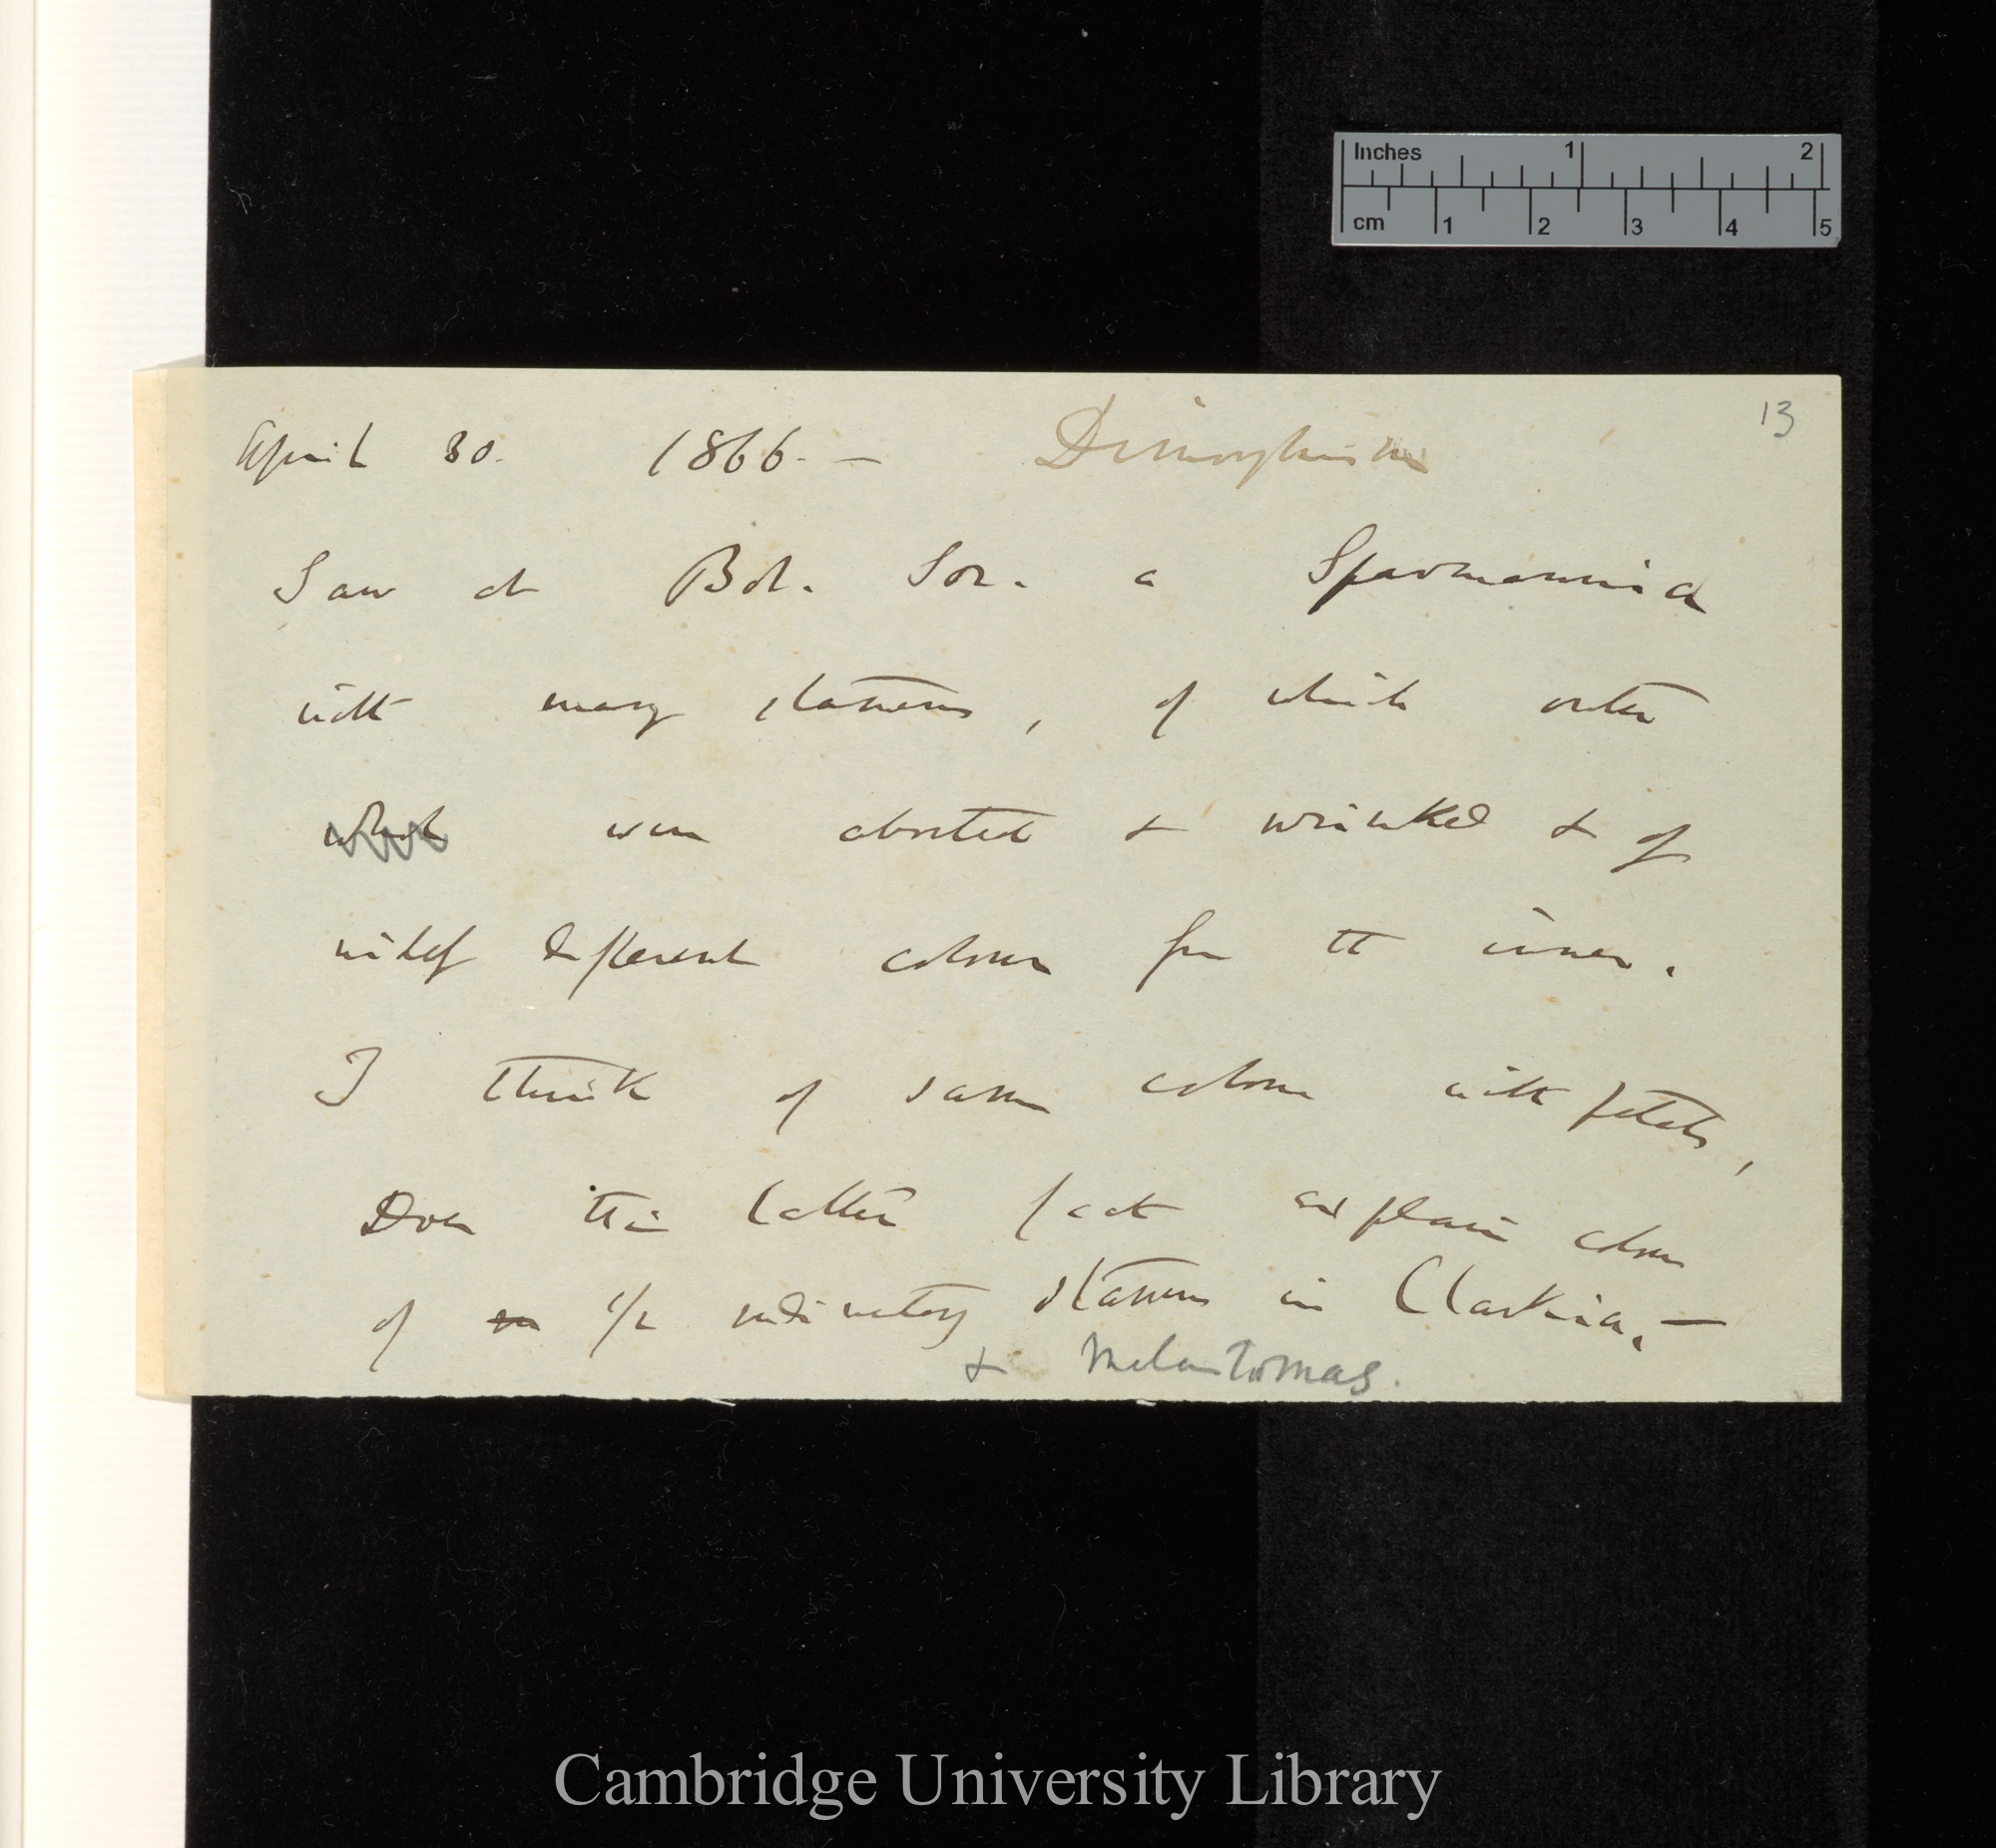 Inches 1 2
cm 1 2 3 4 5
13
April 30. 1866. — Dimorphism
Saw at Bot. Soc. a Sparmannia
with many stamens, of which outer
which were aborted & wrinkled & of
widely different colour from the inner.
I think of same colour with petals,
Does this latter fact explain colour
of 1/2 rudimentary stamens in Clarkia. —
& Melastomas.
Cambridge University Library